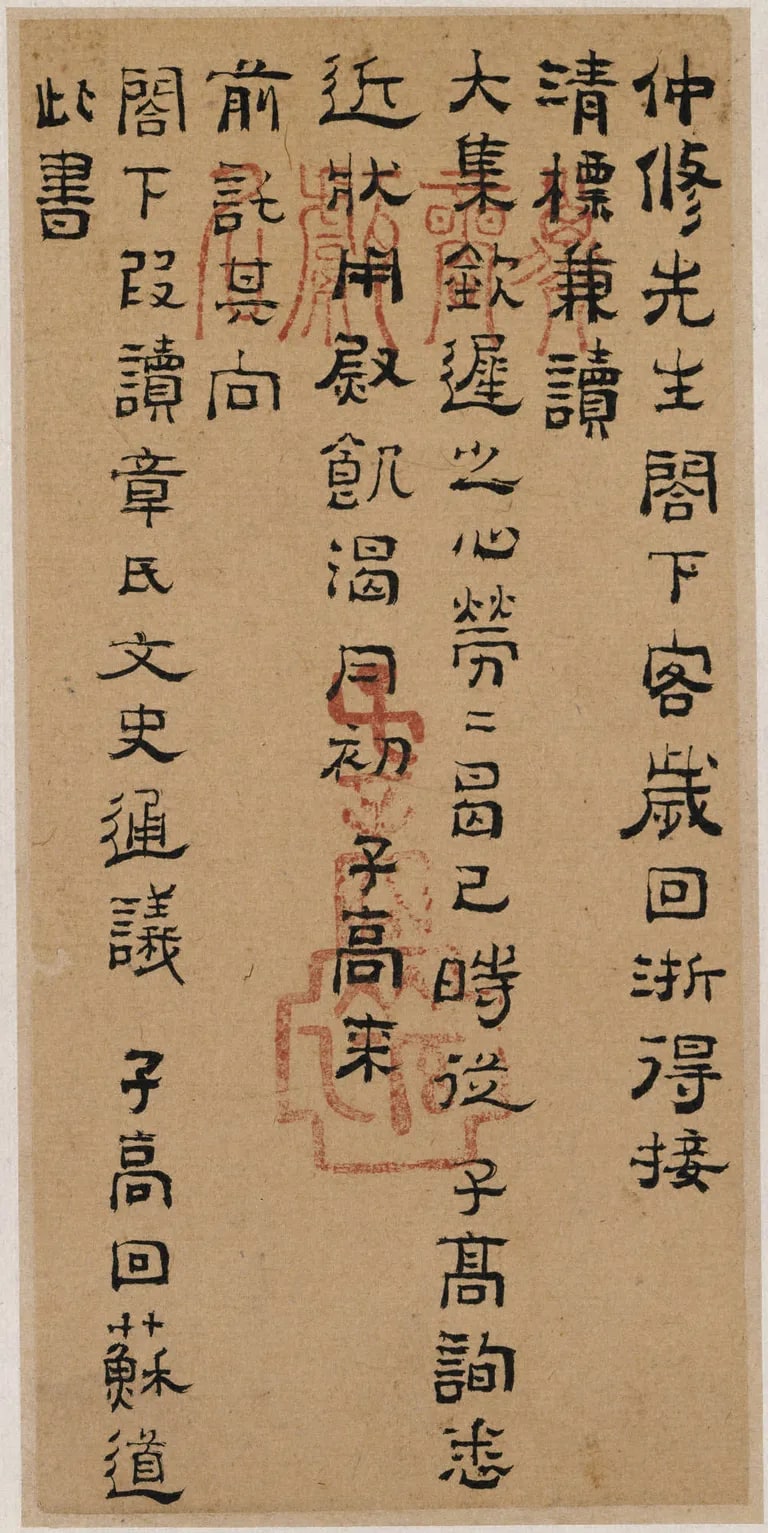 仲修先生閣下客歲回浙得接
清標兼讀
大集欽遲之心勞〻曷已時從 子高詢悉
近狀用慰飢渴月初 子高来
前託其向
閣下叚讀章氏文史通議 子高回蘇道
此書